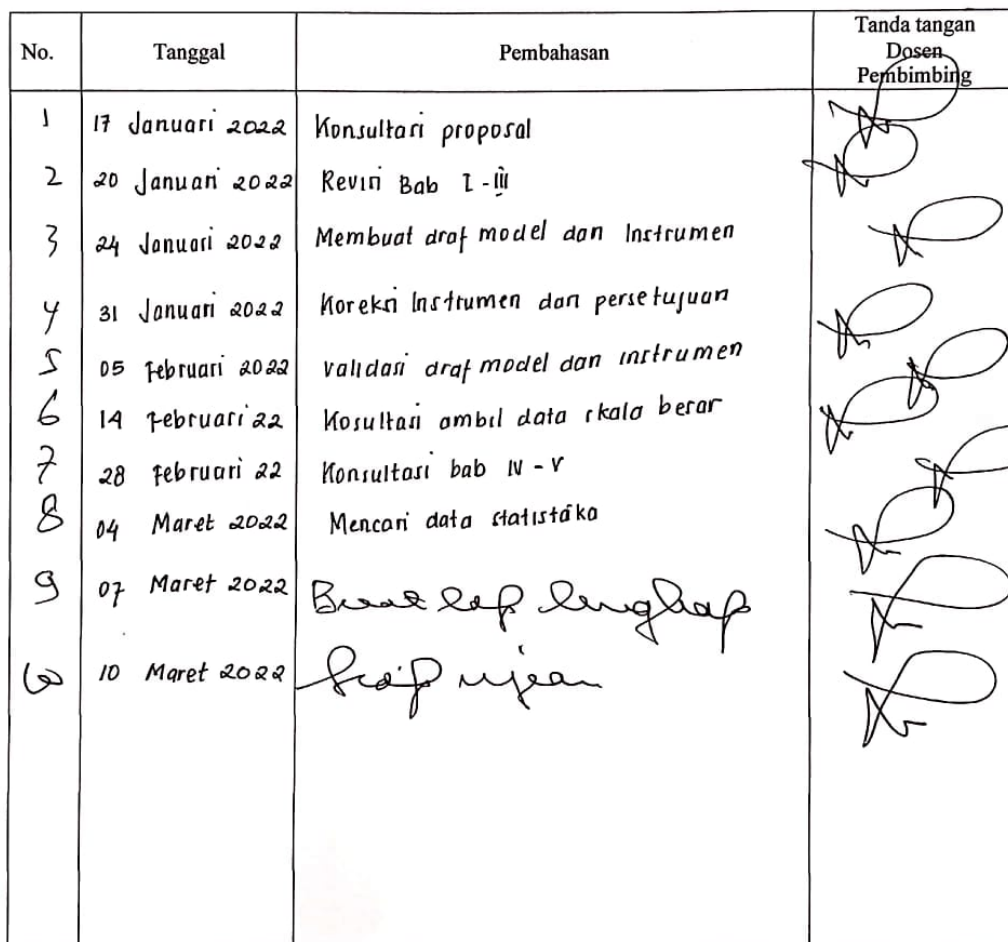 No. Tanggal Pembahasan Tanda tangan
Dosen
Pembimbing
1 17 Januari 2022 Konsultasi proposal
2 20 Januari 2022 Revisi Bab I - III
3 24 Januari 2022 Membuat draf model dan Instrumen
4 31 Januari 2022 Koreksi Instrumen dan persetujuan
5 05 Februari 2022 Validasi draf model dan instrumen
6 14 Februari 22 Kosultasi ambil data skala besar
7 28 Februari 22 Konsultasi bab IV - V
8 04 Maret 2022 Mencari data statistáka
9 07 Maret 2022 Buat lap lengkap
10 10 Maret 2022 Siap ujian